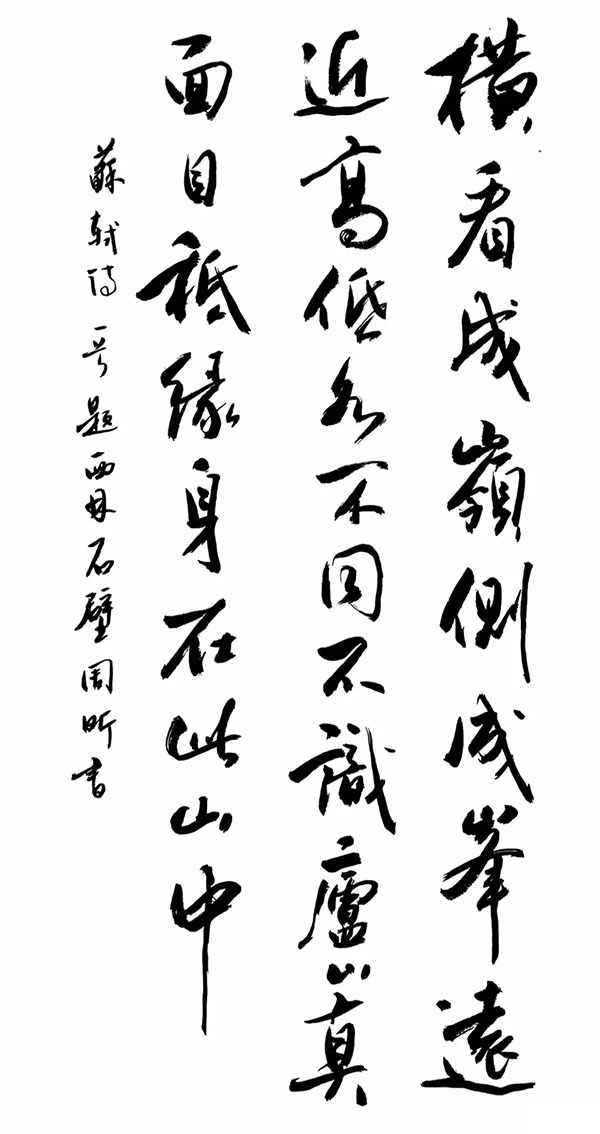 橫看成嶺側成峯遠
近高低各不同不識廬山真
面目秖緣身在此山中
蘇軾詩一首題西林石壁周昕書